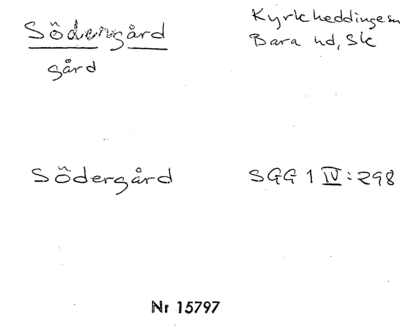 Södergård
gård
Kyrkheddinge sn
Bara hd, Sk
Södergård
SGG 1 IV:298
Nr 15797